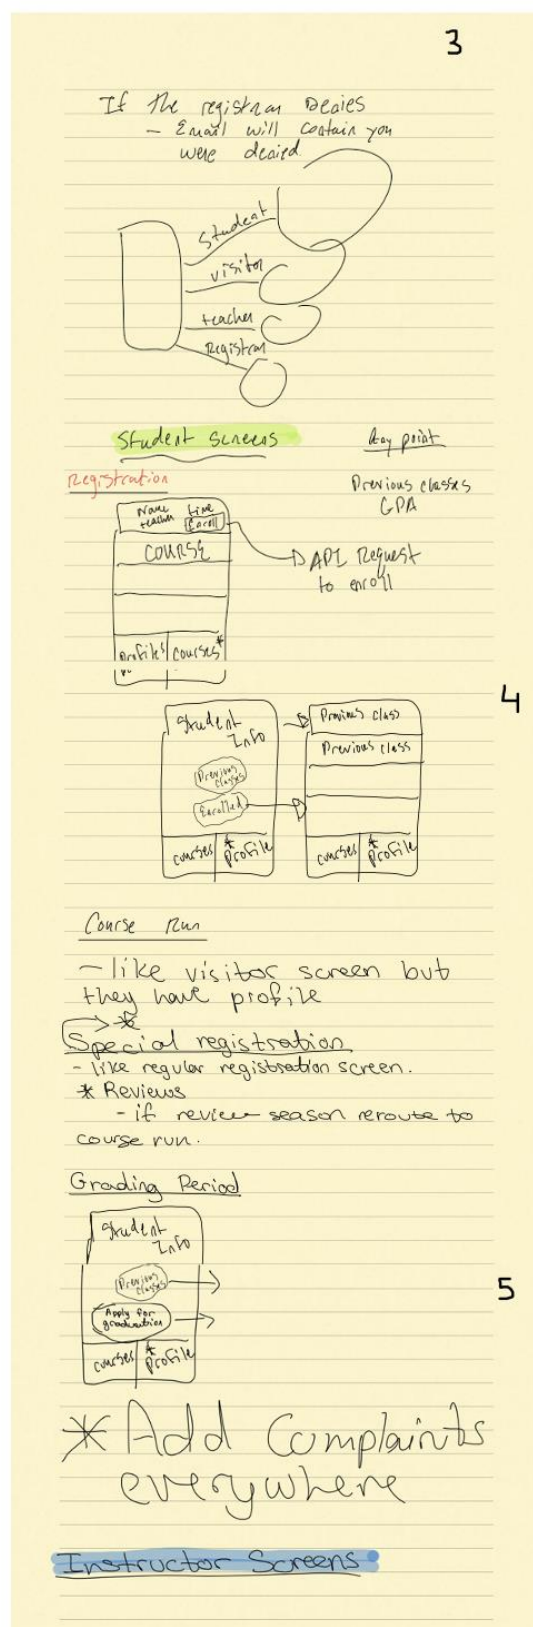 3
If the registrar Denies
- Email will contain you
were denied
Student
visitor
teacher
Registrar
Student Screens
Any point
Registration
Previous classes
GPA
Name Time
teacher Enroll
COURSE
API Request
to enroll
profile courses*
4
Student
Info
Previous class
Previous class
Previous
classes
Enrolled
courses * profile
courses * profile
Course Run
- like visitor screen but
they have profile
*
Special registration
- like regular registration screen.
* Reviews
- if review season reroute to
course run.
Grading Period
Student
Info
Previous
classes
5
Apply for
graduation
courses * profile
* Add Complaints
everywhere
Instructor Screens